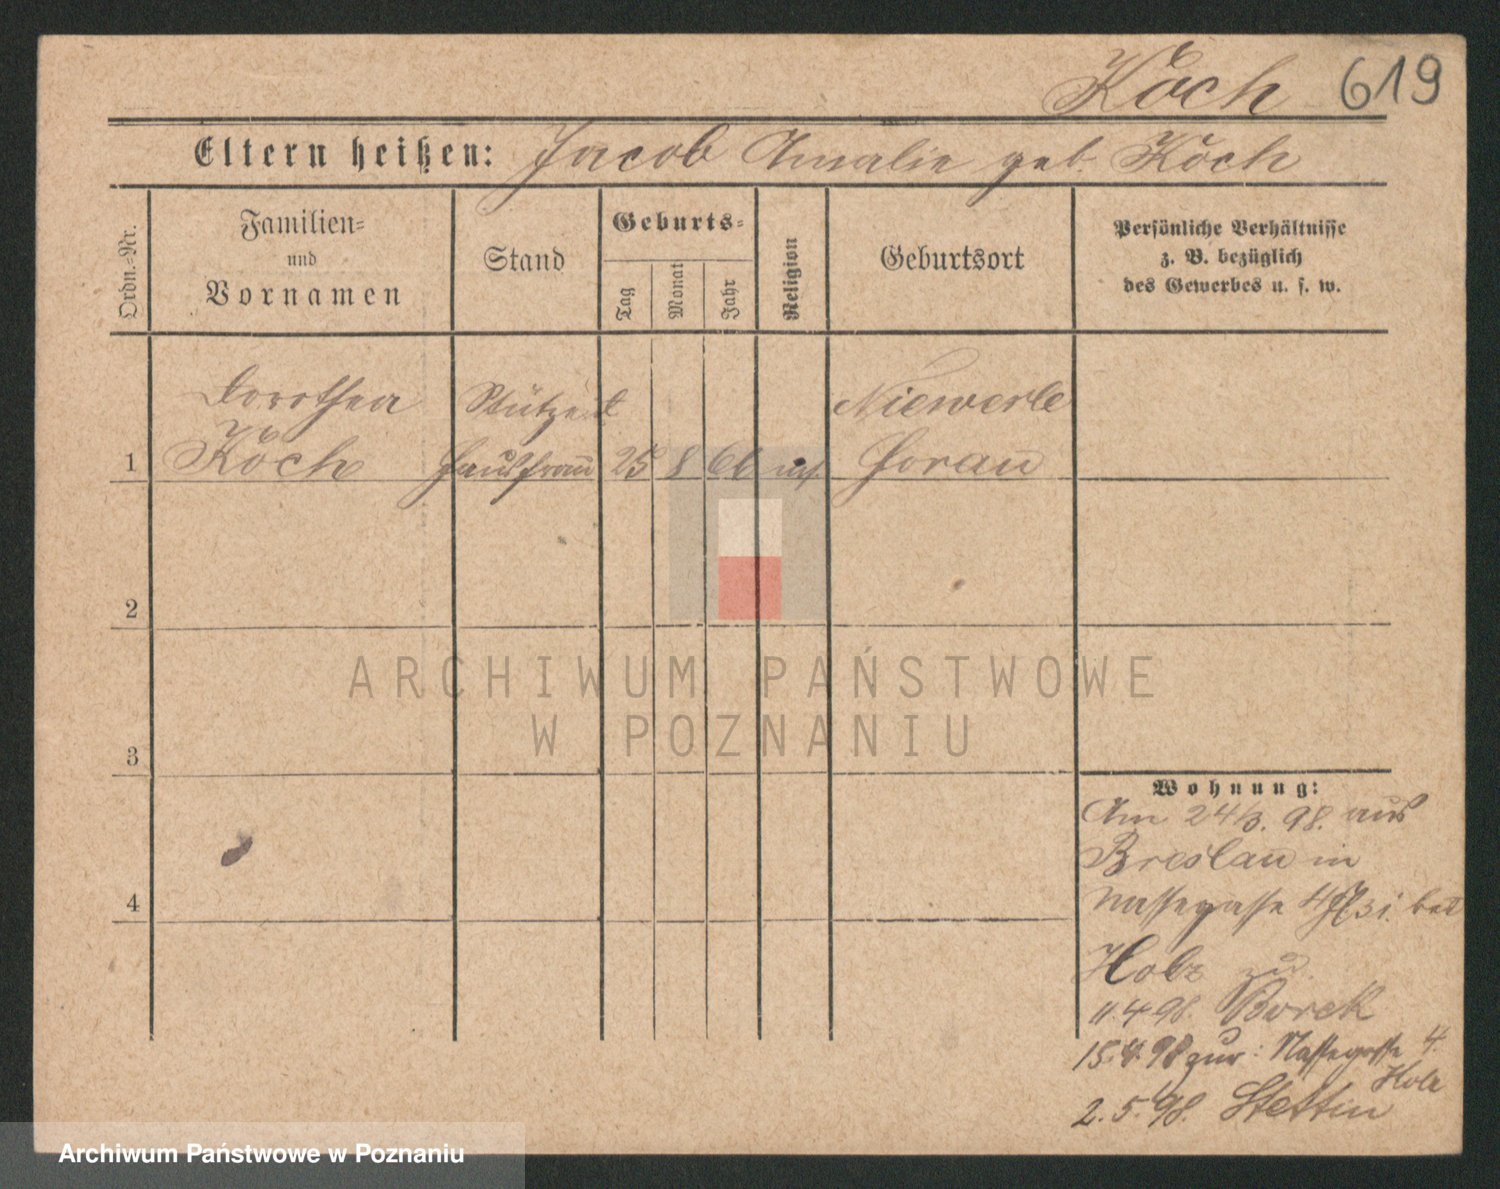 Koch 619
Eltern heißen: Jacob Amalie geb. Koch
Ordn.-Nr.
Familien-
und
Vornamen
Stand
Geburts-
Tag
Monat
Jahr
Religion
Geburtsort
Persönliche Verhältnisse
z. B. bezüglich
des Gewerbes u. s. w.
Dorothea Stütze d Niewerle
1 Koch Hausfrau 25 8 66 Sorau
2
3
4
ARCHIWUM PAŃSTWOWE
W POZNANIU
Wohnung:
Am 24/3. 98. aus
Breslau in
Nassegasse 4 bei
Holz
11.4.98. Borek
15.4.98 zur: Nassegasse 4.
Holz
2.5.98. Stettin
Archiwum Państwowe w Poznaniu